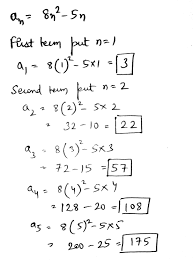 aₙ = 8n² - 5n
First term put n = 1
a₁ = 8(1)² - 5×1 = 3
Second term put n = 2
a₂ = 8(2)² - 5×2
32 - 10 = 22
a₃ = 8(3)² - 5×3
= 72 - 15 = 57
a₄ = 8(4)² - 5×4
= 128 - 20 = 108
a₅ = 8(5)² - 5×5
= 200 - 25 = 175